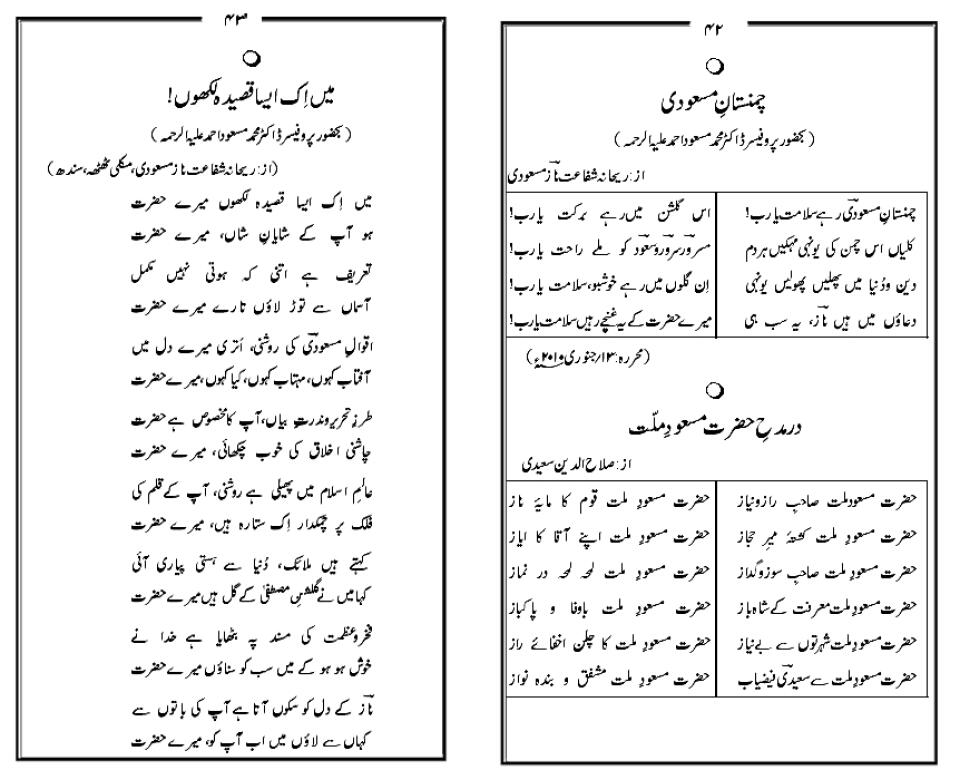 ۴۲
چمنستانِ مسعودی
(بحضور پروفیسر ڈاکٹر محمد مسعود احمد علیہ الرحمہ)
از: ریحانہ شفاعت نازؔ مسعودی
چمنستانِ مسعودیؔ رہے سلامت یارب! اس گلشن میں رہے برکت یارب!
کلیاں اس چمن کی یونہی مہکیں ہر دم مسرورؔ سرورؔ وسعودؔ کو ملے راحت یارب!
دین ودُنیا میں پھلیں پھولیں یونہی اِن گلوں میں رہے خوشبو، سلامت یارب!
دعاؤں میں ہیں نازؔ، یہ سب ہی میرے حضرت کے یہ غنچے رہیں سلامت یارب!
(محررہ: ۱۳/جنوری ۲۰۱۰ء)
در مدحِ حضرت مسعودِ ملّت
از: صلاح الدین سعیدی
حضرت مسعود ملت صاحبِ رازونیاز حضرت مسعودِ ملت قوم کا مایۂ ناز
حضرت مسعودِ ملت کشتۂ میرِ حجاز حضرت مسعودِ ملت اپنے آقا کا ایاز
حضرت مسعودِ ملت صاحبِ سوزوگداز حضرت مسعودِ ملت لمحہ لمحہ در نماز
حضرت مسعودِ ملت معرفت کے شاہ باز حضرت مسعودِ ملت باوفا و پاکباز
حضرت مسعودِ ملت شہرتوں سے بے نیاز حضرت مسعودِ ملت کا چلن اخفائے راز
حضرت مسعودِ ملت سے سعیدیؔ فیضیاب حضرت مسعودِ ملت مشفق و بندہ نواز
۴۳
میں اِک ایسا قصیدہ لکھوں!
(بحضور پروفیسر ڈاکٹر محمد مسعود احمد علیہ الرحمہ)
(از: ریحانہ شفاعت ناز مسعودی، مکلی ٹھٹھہ، سندھ)
میں اِک ایسا قصیدہ لکھوں میرے حضرت
ہو آپ کے شایانِ شاں، میرے حضرت
تعریف ہے اتنی کہ ہوتی نہیں مکمل
آسماں سے توڑ لاؤں تارے میرے حضرت
اقوالِ مسعودیؔ کی روشنی، اُتری میرے دل میں
آفتاب کہوں، مہتاب کہوں، کیا کہوں، میرے حضرت
طرزِ تحریر وندرتِ بیاں، آپ کا مخصوص ہے حضرت
چاشنی اخلاق کی خوب چکھائی، میرے حضرت
عالمِ اسلام میں پھیلی ہے روشنی، آپ کے قلم کی
فلک پر چمکدار اِک ستارہ ہیں، میرے حضرت
کہتے ہیں ملائک، دُنیا سے ہستی پیاری آئی
کہا میں نے گلشنِ مصطفیٰ کے گل ہیں میرے حضرت
فخروعظمت کی مسند پہ بٹھایا ہے خدا نے
خوش ہو ہو کے میں سب کو سناؤں میرے حضرت
نازؔ کے دل کو سکوں آتا ہے آپ کی باتوں سے
کہاں سے لاؤں میں اب آپ کو، میرے حضرت